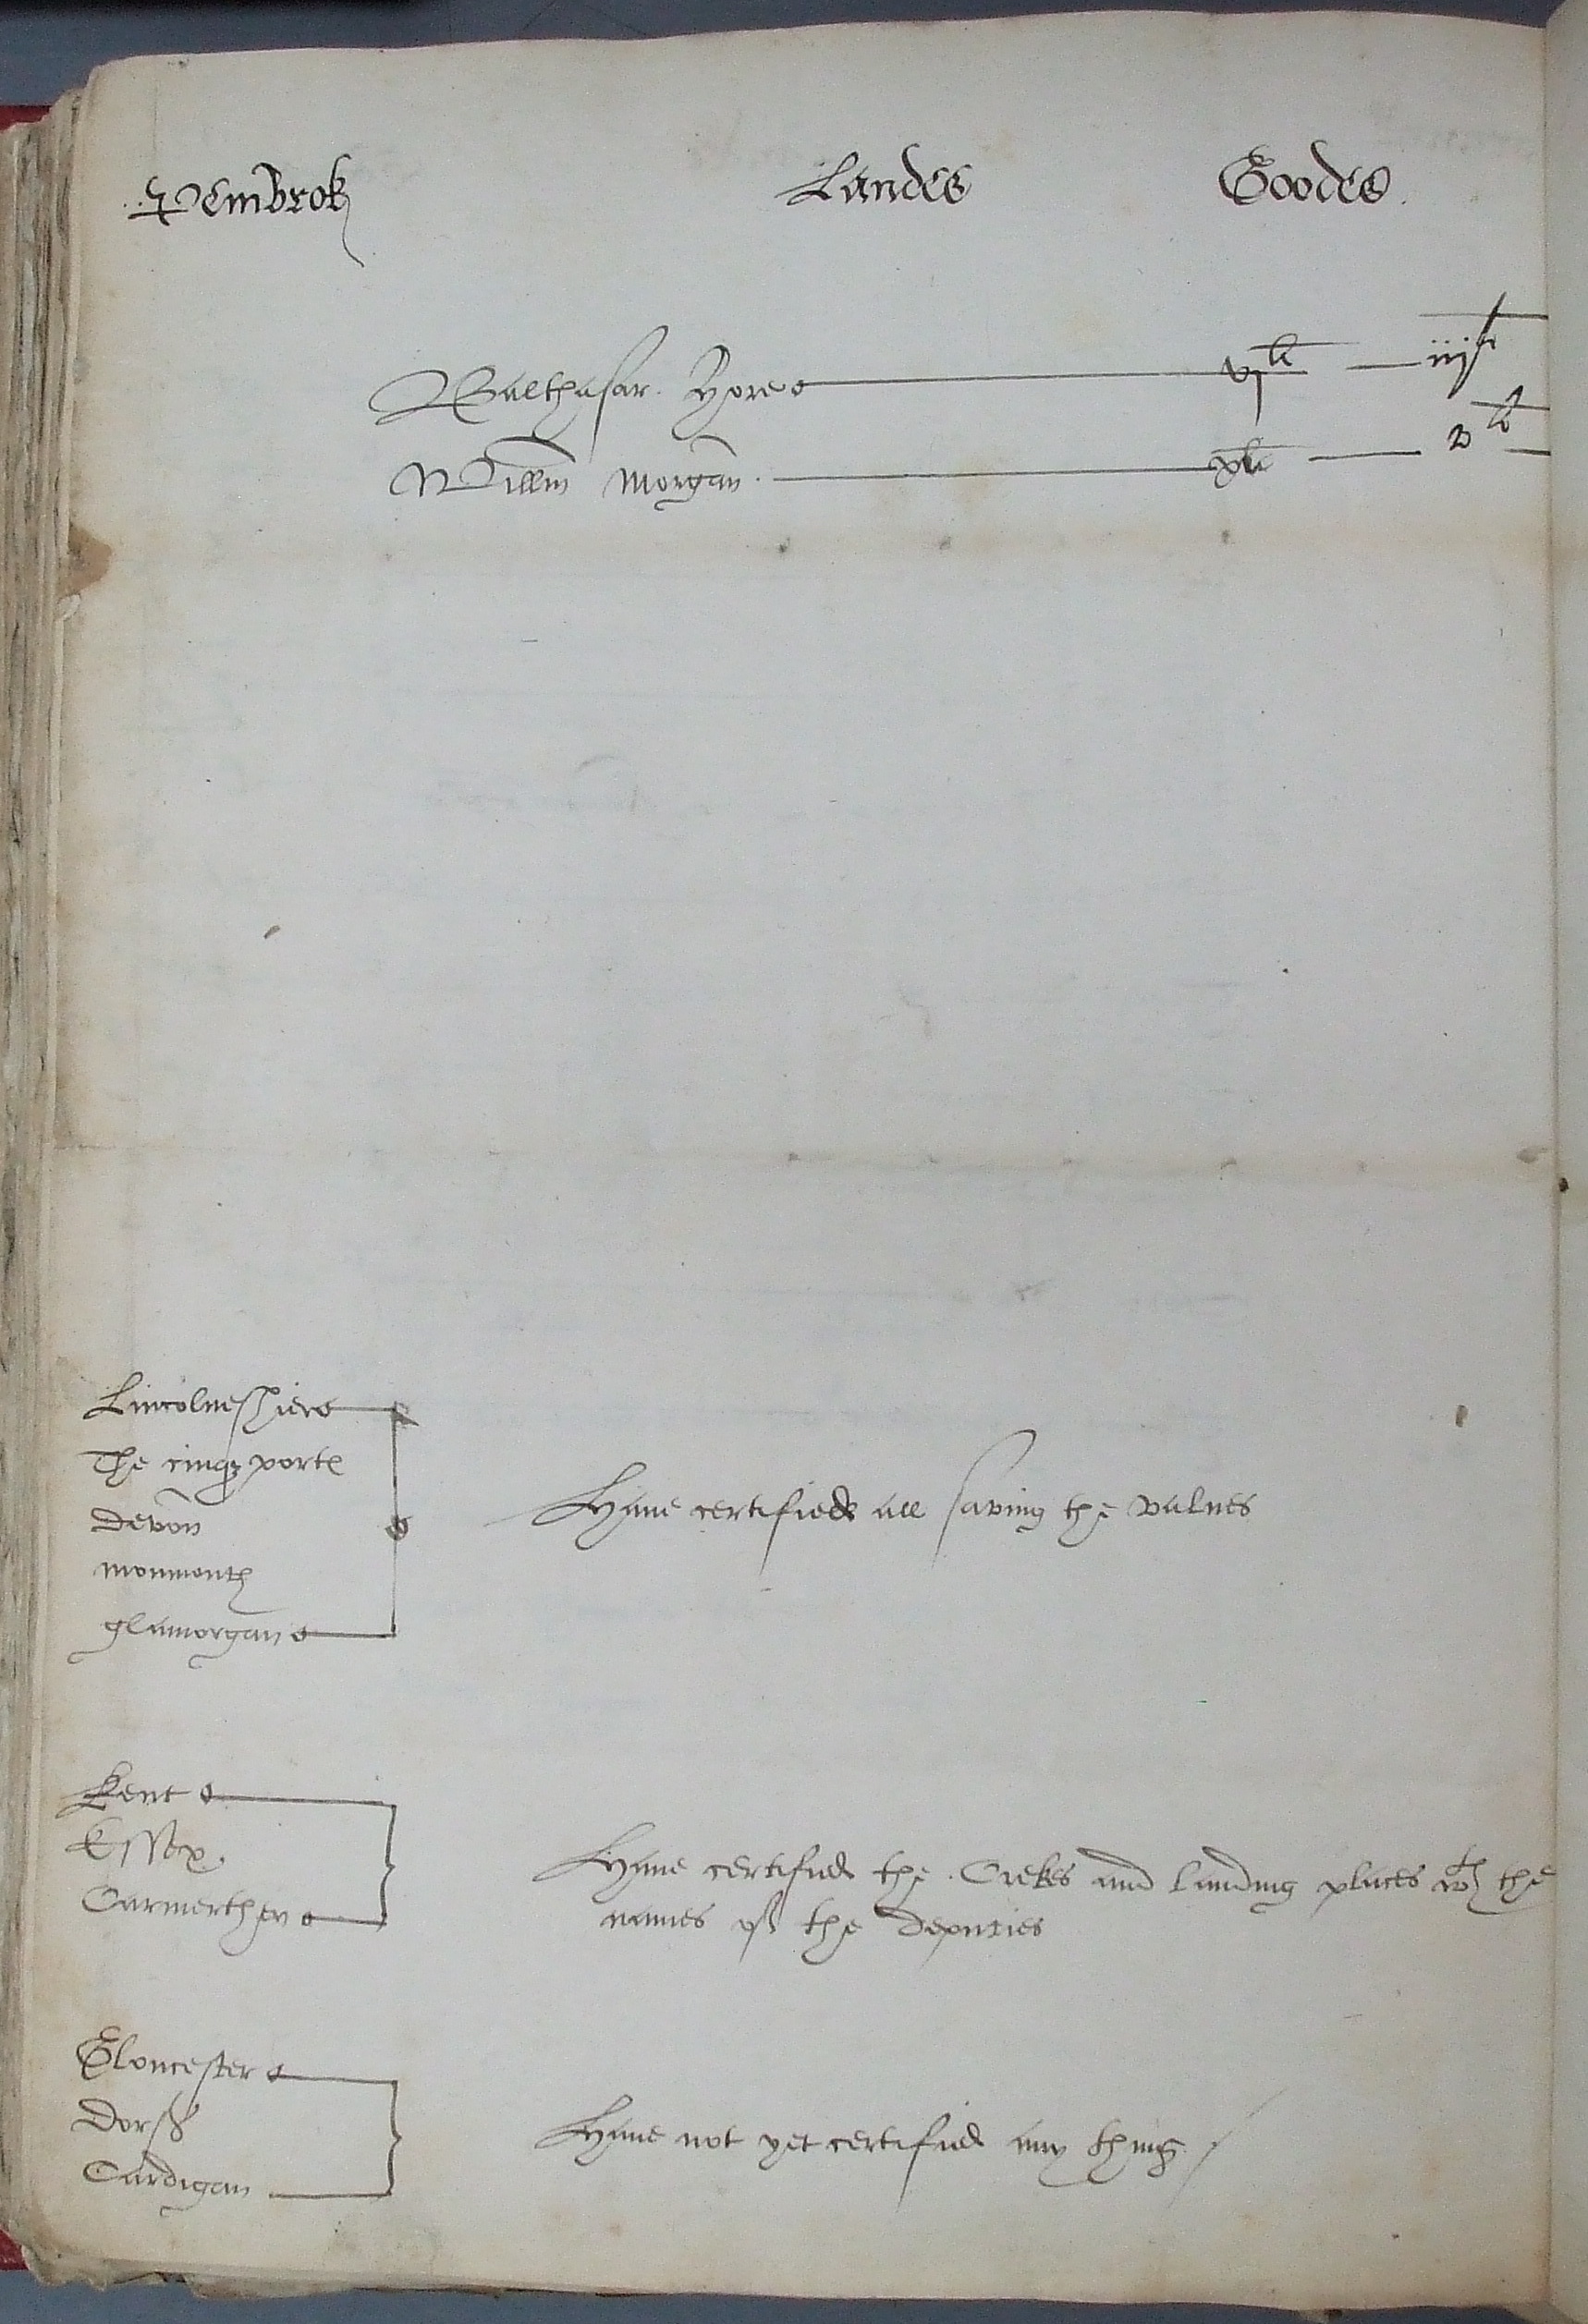 Pembrok Landes Goodes
Balthasar Gore vjli iijli
Willm Morgan xli vli
Lincolneshiere
The cinq porte
Devon
monmonth
glamorgan
Haue certefied all saving the values
Kent
Essex
Carmerthen
Haue certefied the Crekes and landing places wth the
names of the deputies
Gloucester
Dorss
Cardigan
Haue not yet certefied any thing